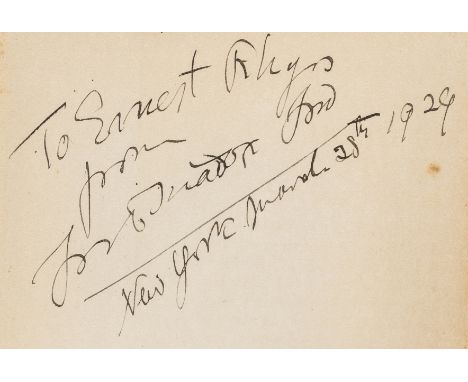 To Ernest Rhys
from
Ford Madox Ford
New York March 28th 1929